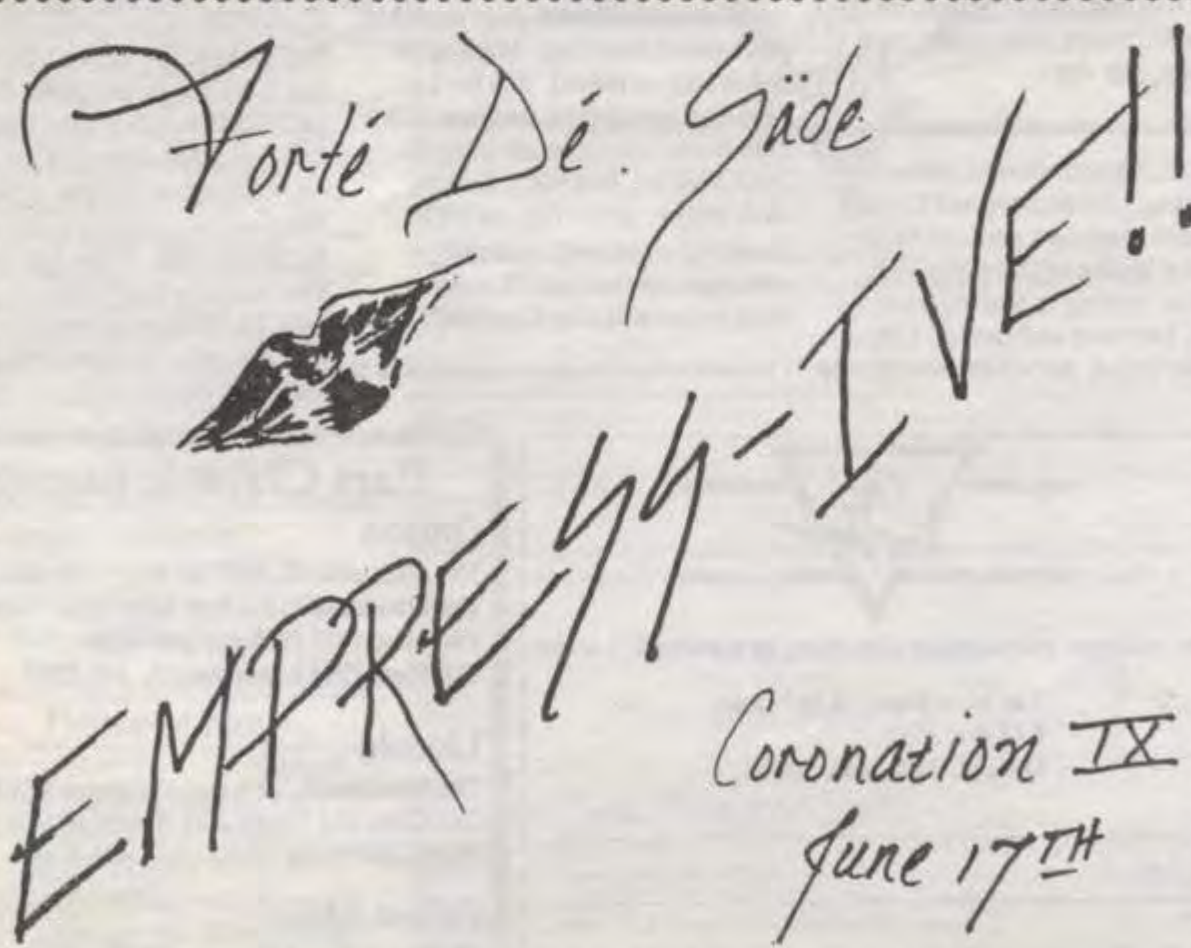 Forté Dé. Säde
EMPRESS-IVE!!
Coronation IX
June 17TH